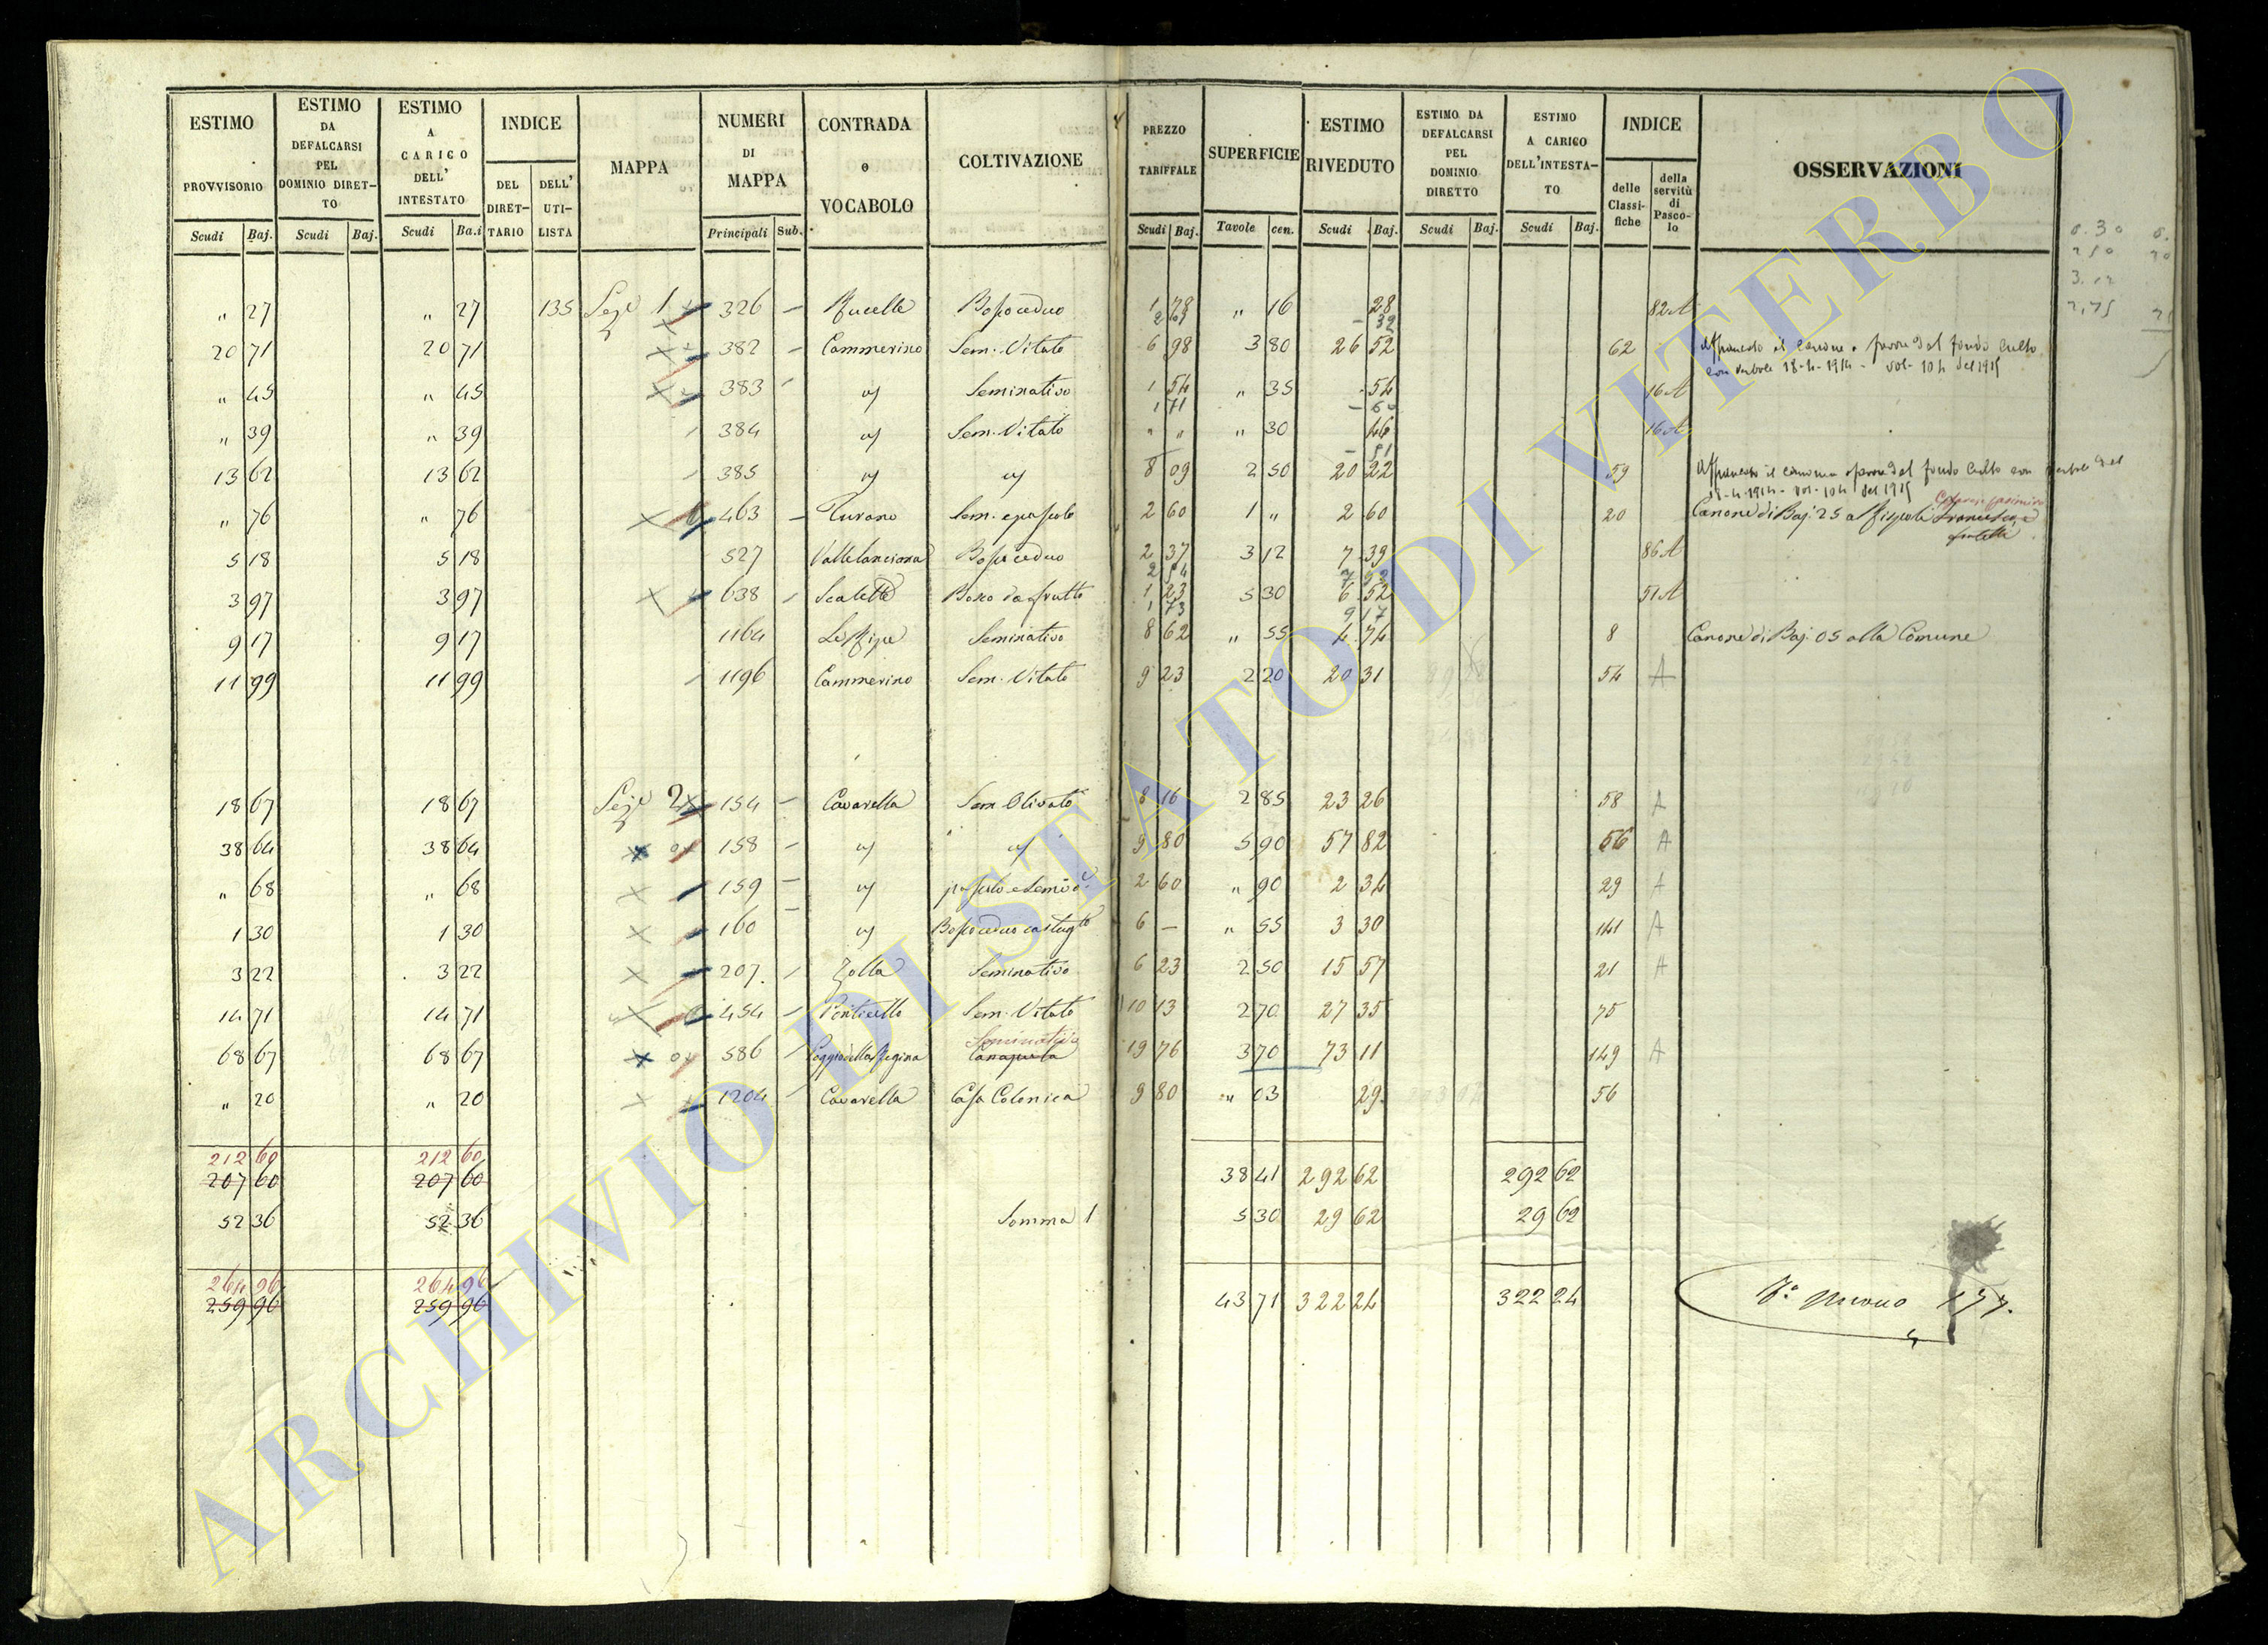 ESTIMO PROVVISORIO Scudi Baj.
ESTIMO DA DEFALCARSI PEL DOMINIO DIRET- TO Scudi Baj.
ESTIMO A CARICO DELL' INTESTATO Scudi Ba.i
INDICE DEL DIRET- TARIO DELL' UTI- LISTA
MAPPA
NUMERI DI MAPPA Principali Sub.
CONTRADA o VOCABOLO
COLTIVAZIONE
PREZZO TARIFFALE Scudi Baj.
SUPERFICIE Tavole cen.
ESTIMO RIVEDUTO Scudi Baj.
ESTIMO DA DEFALCARSI PEL DOMINIO DIRETTO Scudi Baj.
ESTIMO A CARICO DELL'INTESTA- TO Scudi Baj.
INDICE delle Classi- fiche della servitù di Pasco- lo
OSSERVAZIONI
" 27 " 27 135 Sez.e 1 326 Rucelle Bosco ceduo 1 78 " 16 28 82 A
20 71 20 71 382 Cammerino Sem. Vitato 6 98 3 80 26 52 62
" 45 " 45 383 " Seminativo 1 54 " 35 54 16 A
1 71 60
" 39 " 39 384 " Sem. Vitato " " " 30 46 16 A
13 62 13 62 385 " " 8 09 2 50 20 22 59
" 76 " 76 463 Turano Sem. e pascolo 2 60 1 " 2 60 20 Canone di Baj. 25 a
5 18 5 18 527 Vallelanciana Bosco ceduo 2 37 3 12 7 39 86 A
3 97 3 97 638 Scalette Bosco da frutto 1 23 5 30 6 52 51 A
1 73 9 17
9 17 9 17 1164 Le Ripe Seminativo 8 62 " 55 4 74 8 Canone di Baj. 05 alla Comune
11 99 11 99 1196 Cammerino Sem. Vitato 9 23 2 20 20 31 54 A
18 67 18 67 Sez.e 2 154 Cavarella Sem. Olivato 8 16 2 85 23 26 58 A
38 64 38 64 158 " " 9 80 5 90 57 82 56 A
" 68 " 68 159 " pascolo e Semin.o 2 60 " 90 2 34 29 A
1 30 1 30 160 " Bosco ceduo castag.to 6 — " 55 3 30 141 A
3 22 3 22 207 Zolla Seminativo 6 23 2 50 15 57 21 A
14 71 14 71 454 Ponticello Sem. Vitato 10 13 2 70 27 35 75
Seminativo
68 67 68 67 586 Poggio della Regina Canapule 19 76 3 70 73 11 149 A
" 20 " 20 1204 Cavarella Casa Colonica 9 80 " 03 29 56
212 60 212 60
207 60 207 60 38 41 292 62 292 62
52 36 52 36 Somma 1 5 30 29 62 29 62
264 96 264 96
259 96 259 96 43 71 322 24 322 24
ARCHIVIO DI STATO DI VITERBO